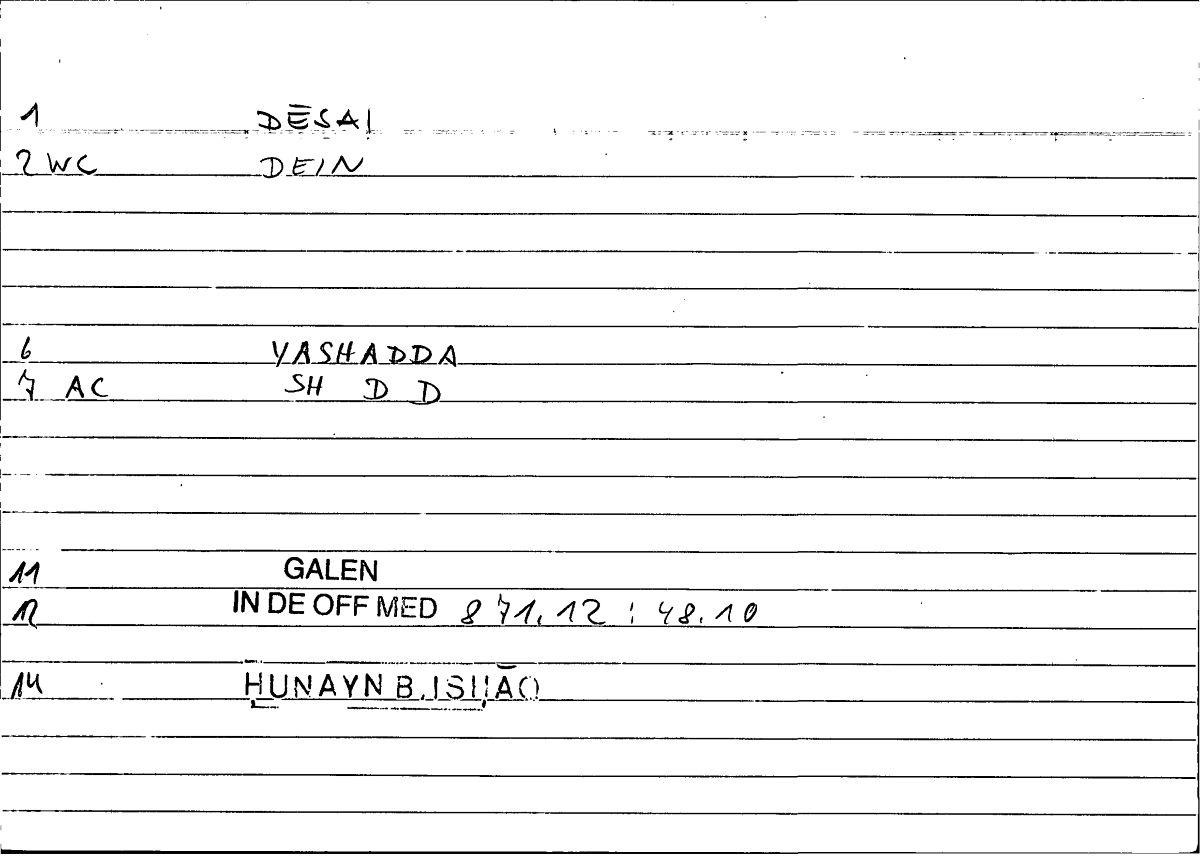 1 DĒSAI
2 WC DEIN
6 YASHADDA
7 AC SH D D
11 GALEN
12 IN DE OFF MED 871.12 : 48.10
14 ḤUNAYN B. ISḤĀQ